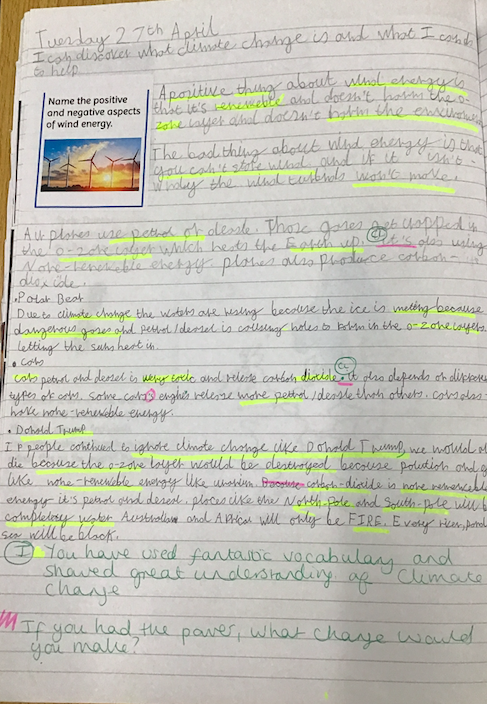 Tuesday 27th April
I can discover what climate change is and what I can do
to help.
Name the positive
and negative aspects
of wind energy.
A poritive thing about wind energy is
that it's renewable and doesn't harm the o-
zone layer and doesn't harm the
The bad thing about wind energy is that
you can't store wind and if it isn't
windy the wind turbines won't move.
All planes use petrol or deasle. Those gases get trapped in
the o-zone layer which heats the Earth up. CL It's also using
None-renewable energy planes also produce carbon-
dioxcide.
• Polar Bear
Due to climate change the waters are rising because the ice is melting because
dangerous gases and petrol/deasel is causing holes to form in the o-zone layers
letting the suns heat in.
• Cars
CL
cars petrol and deasel is very toxic and release carbon dioxide. it also depends on
types of cars. Some cars engines release more petrol/deasle than others. Cars also
have none-renewable energy.
• Donald Trump
If people continued to ignore climate change like Donald Trump, we would all
die because the o-zone layer would be destroyed because polution and
like none-renewable energy like uranium. Because carbon-dioxide is none renewable
energy it's petrol and deasel. places like the North Pole and South-pole will be
completely water Australia and Africa will only be FIRE. Every river, pond
sea will be black.
I You have used fantastic vocabulary and
shaved great understanding of Climate
Change
If you had the power, what change would
you make?